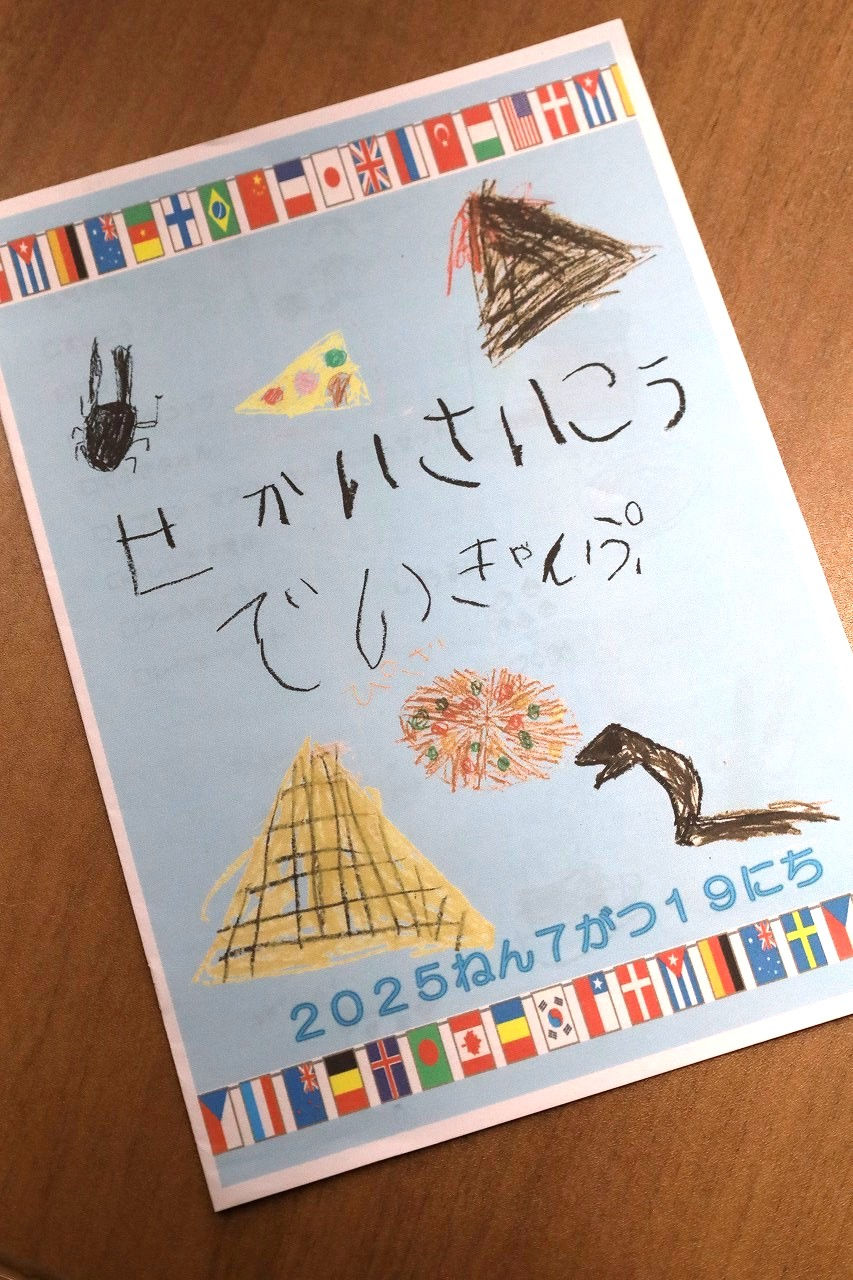 せかいさいこう
でいきゃんぷ
2025ねん7がつ19にち